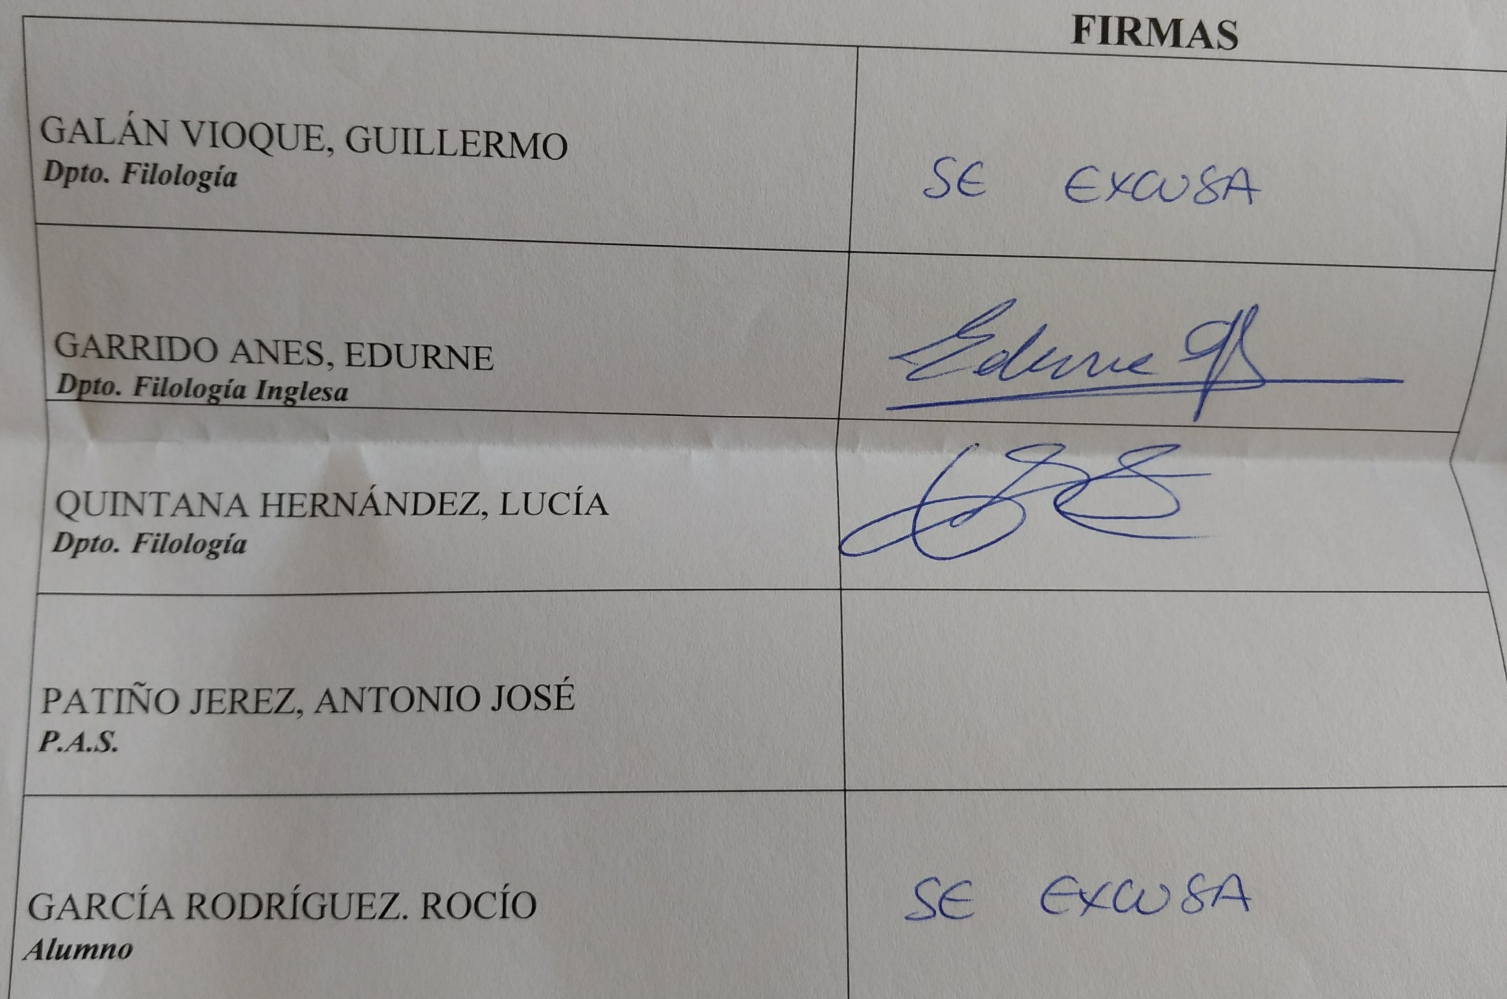 FIRMAS
GALÁN VIOQUE, GUILLERMO
Dpto. Filología
SE EXCUSA
GARRIDO ANES, EDURNE
Dpto. Filología Inglesa
Edurne
QUINTANA HERNÁNDEZ, LUCÍA
Dpto. Filología
PATIÑO JEREZ, ANTONIO JOSÉ
P.A.S.
GARCÍA RODRÍGUEZ. ROCÍO
Alumno
SE EXCUSA